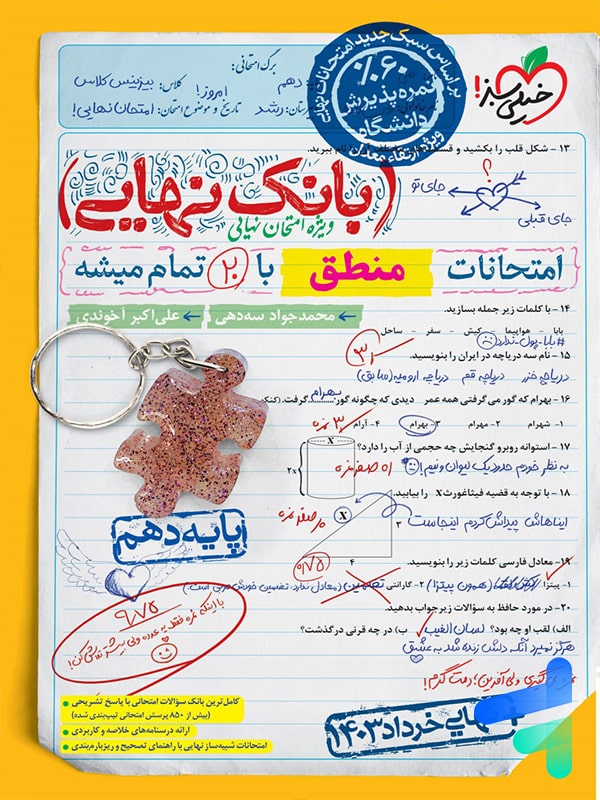 براساس سبک جدید امتحانات نهایی
٪۶۰
نمره پذیرش
دانشگاه
ویژه ارتقاء معدل
خیلی سبز!
برگ امتحانی:
دهم
کلاس: بیزینس کلاس
امروز!
رشد
تاریخ و موضوع امتحان: امتحان نهایی!
۱۳ - شکل قلب را بکشید و
نام ببرید.
؟
جای تو
جای قبلی
(بانک نهایی)
ویژه امتحان نهایی
امتحانات منطق با ۲۰ تمام میشه
محمدجواد سه‌دهی
علی‌اکبر آخوندی
۱۴ - با کلمات زیر جمله بسازید.
بابا - هواپیما - کیش - سفر - ساحل
#بابا-پول-ندارد
۱۵ - نام سه دریاچه در ایران را بنویسید.
دریاچه خزر دریاچه قم دریاچه ارومیه (سابق)
۱۶ - بهرام که گور می گرفتی همه عمر دیدی که چگونه گور بهرام گرفت.
۱- شهرام ۲- بهرام ۳- پدرام ۴- آرام
۱۷ - استوانه روبرو گنجایش چه حجمی از آب را دارد؟
x
۲x
به نظر خودم حدود یک لیوان و نیم!
۱۸ - با توجه به قضیه فیثاغورث X را بیابید.
X
۳
۴
ایناهاش پیداش کردم اینجاست
پایه دهم
۰/۷۵
۱۹- معادل فارسی کلمات زیر را بنویسید.
۱- پیتزا (همون پیتزا) ۲- گارانتی تضمین (معادل ندارد، تضمین خودش عربی است.)
۲۰- در مورد حافظ به سؤالات زیر جواب بدهید.
الف) لقب او چه بود؟ لسان الغیب ب) در چه قرنی درگذشت؟
هرگز نمیرد آنکه دلش زنده شد به عشق
۹/۷۵
کامل‌ترین بانک سؤالات امتحانی با پاسخ تشریحی
(بیش از ۸۵۰ پرسش امتحانی تیپ‌بندی شده)
ارائه درسنامه‌های خلاصه و کاربردی
امتحانات شبیه‌ساز نهایی با راهنمای تصحیح و ریزبارم‌بندی
نهایی خرداد ۱۴۰۳